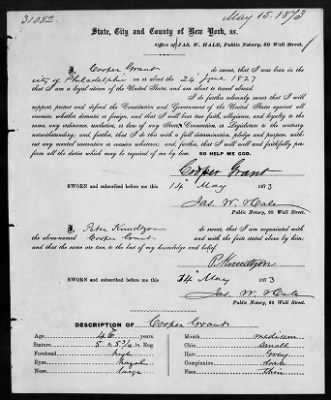 31082.
May 15. 1873
State, City and County of New York, ss.
Office of JAS. W. HALE, Public Notary, 69 Wall Street.
I, Cooper Grant do swear, that I was born in the
city of Philadelphia on or about the 24 June 1827
that I am a loyal citizen of the United States, and am about to travel abroad.
I do further solemnly swear that I will
support, protect and defend the Constitution and Government of the United States against all
enemies, whether domestic or foreign, and that I will bear true faith, allegiance, and loyalty to the
same, any ordinance, resolution, or law of any State Convention, or Legislature to the contrary
notwithstanding; and further, that I do this with a full determination, pledge and purpose, without
any mental reservation or evasion whatever; and, further, that I will well and faithfully perform
all the duties which may be required of me by law. SO HELP ME GOD.
Cooper Grant
SWORN and subscribed before me this 14 May 1873
Jas. W. Hale
Public Notary, 69 Wall Street.
I, do swear, that I am acquainted with
the above-named Cooper Grant and with the facts stated above by him;
and that the same are true to the best of my knowledge and belief.
SWORN and subscribed before me this 14 May 1873
Jas. W. Hale
Public Notary, 69 Wall Street.
DESCRIPTION OF Cooper Grant
Age, 46 years. Mouth, medium
Stature, 5 ft 5 3/4 in Eng. Chin, small
Forehead, high Hair, Grey
Eyes, hazel Complexion, dark
Nose, large Face, thin